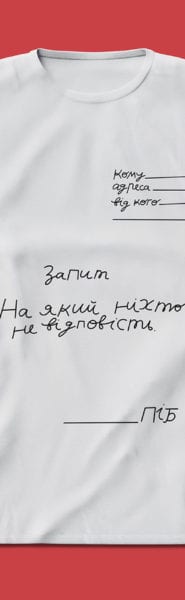 Кому
адреса
від кого
Запит
На який ніхто
не відповість.
ПІБ